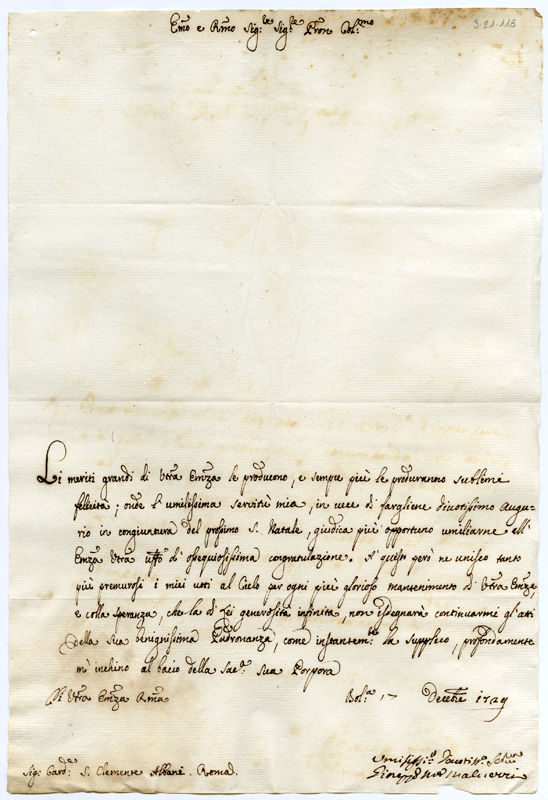 Emo e Rmo Sig:re Sig:re Pron Col:mo
3-21-118
Li meriti grandi di Vtra Emza le producono, e sempre più le produranno sublime
felicità; onde l'umilissima servitù mia, in vece di fargliene divotissimo Augu-
rio in congiuntura del prossimo S. Natale, giudica più opportuno umiliarne all'
Emza Vtra uffo d'ossequiosissima congratulazione. A' questo però ne unisco tanto
più premurosi i miei voti al Cielo per ogni più glorioso mantenimento d' Vtra Emza,
e colla speranza, che la di Lei generosità infinita, non isdegnarà continuarmi gl'atti
della sua benignissima Padronanza, come instantem:te la supplico, profondamente
m'inchino al bacio della Sac:a sua Porpora
Di Vtra Emza Rma
Bol:a 17 Decebre 1729
Sig: Card:le S. Clemente Albani. Roma.
Umilissi:o Ser:re
Malvezzi